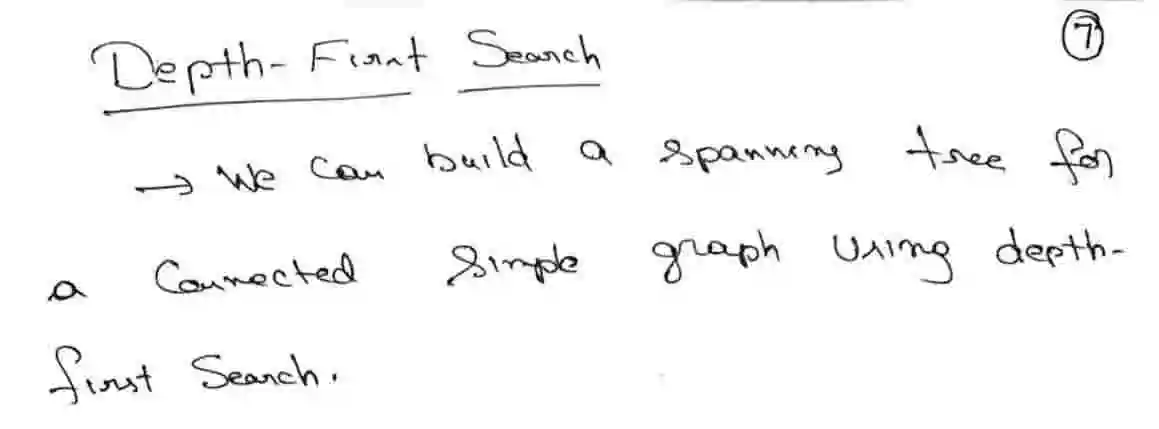 Depth-First Search
7
→ We can build a spanning tree for
a Connected Simple graph using depth-
first Search.